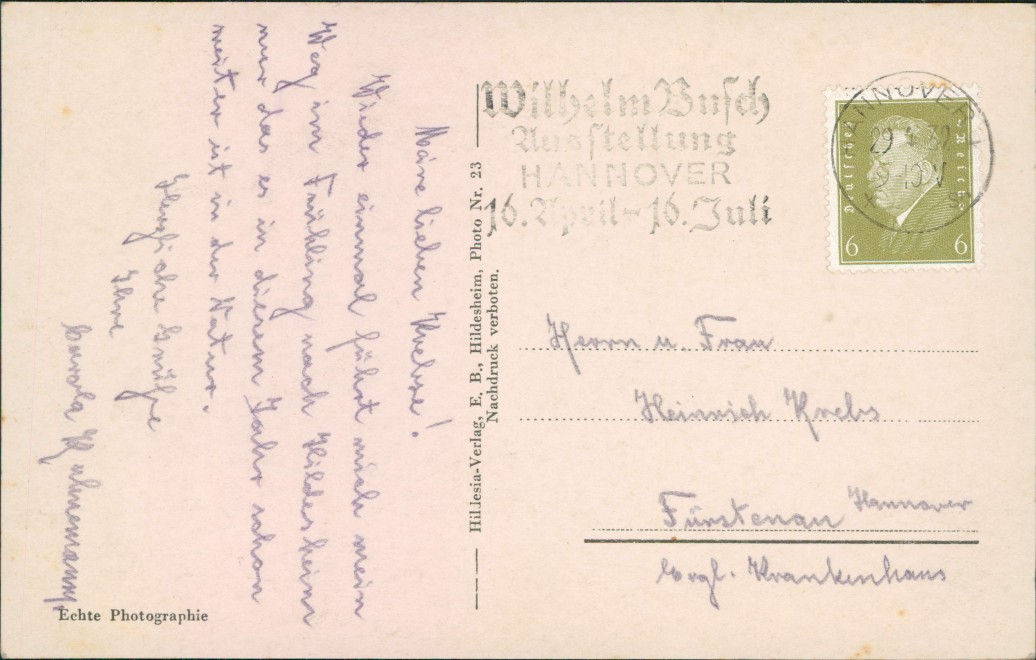 Meine lieben Krebse!
Wieder einmal führt mich mein
Weg im Frühling nach Hildesheim
nur das es in diesem Jahr schon
weiter ist in der Natur.
Herzliche Grüße
Ihre
Carola
Echte Photographie
Hillesia-Verlag, E. B., Hildesheim, Photo Nr. 23
Nachdruck verboten.
Wilhelm Busch
Ausstellung
HANNOVER
16. April–16. Juli
HANNOVER
29 4 32
10 V
Deutsches Reich
6 6
Herrn u. Frau
Heinrich Krebs
Fürstenau Hannover
Evgl. Krankenhaus